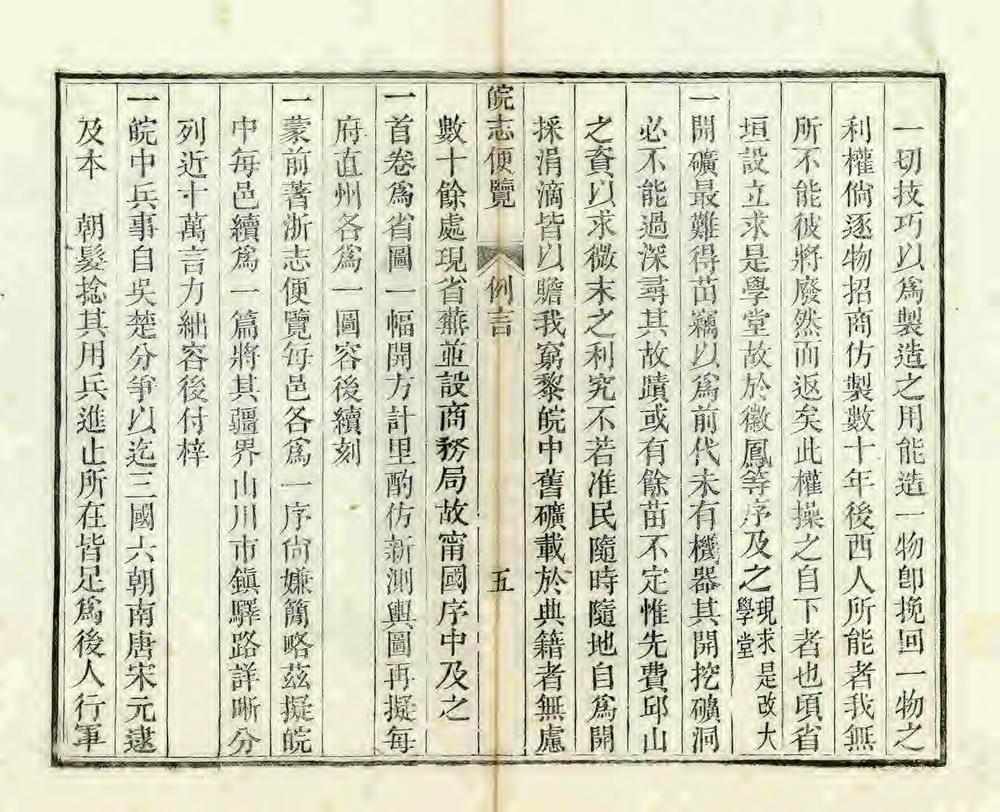 一切技巧以爲製造之用能造一物卽挽回一物之
利權倘逐物招商仿製數十年後西人所能者我無
所不能彼將廢然而返矣此權操之自下者也頃省
垣設立求是學堂故於徽鳳等序及之現求是改大學堂
一開礦最難得苗竊以爲前代未有機器其開挖礦洞
必不能過深尋其故蹟或有餘苗不定惟先費邱山
之資以求微末之利究不若准民隨時隨地自爲開
採涓滴皆以贍我窮黎皖中舊礦載於典籍者無慮
皖志便覽 例言 五
數十餘處現省蕪並設商務局故甯國序中及之
一首卷爲省圖一幅開方計里酌仿新測輿圖再擬每
府直州各爲一圖容後續刻
一蒙前著浙志便覽每邑各爲一序尙嫌簡略茲擬皖
中每邑續爲一篇將其疆界山川市鎭驛路詳晰分
列近十萬言力絀容後付梓
一皖中兵事自吳楚分爭以迄三國六朝南唐宋元逮
及本 朝髮捻其用兵進止所在皆足爲後人行軍